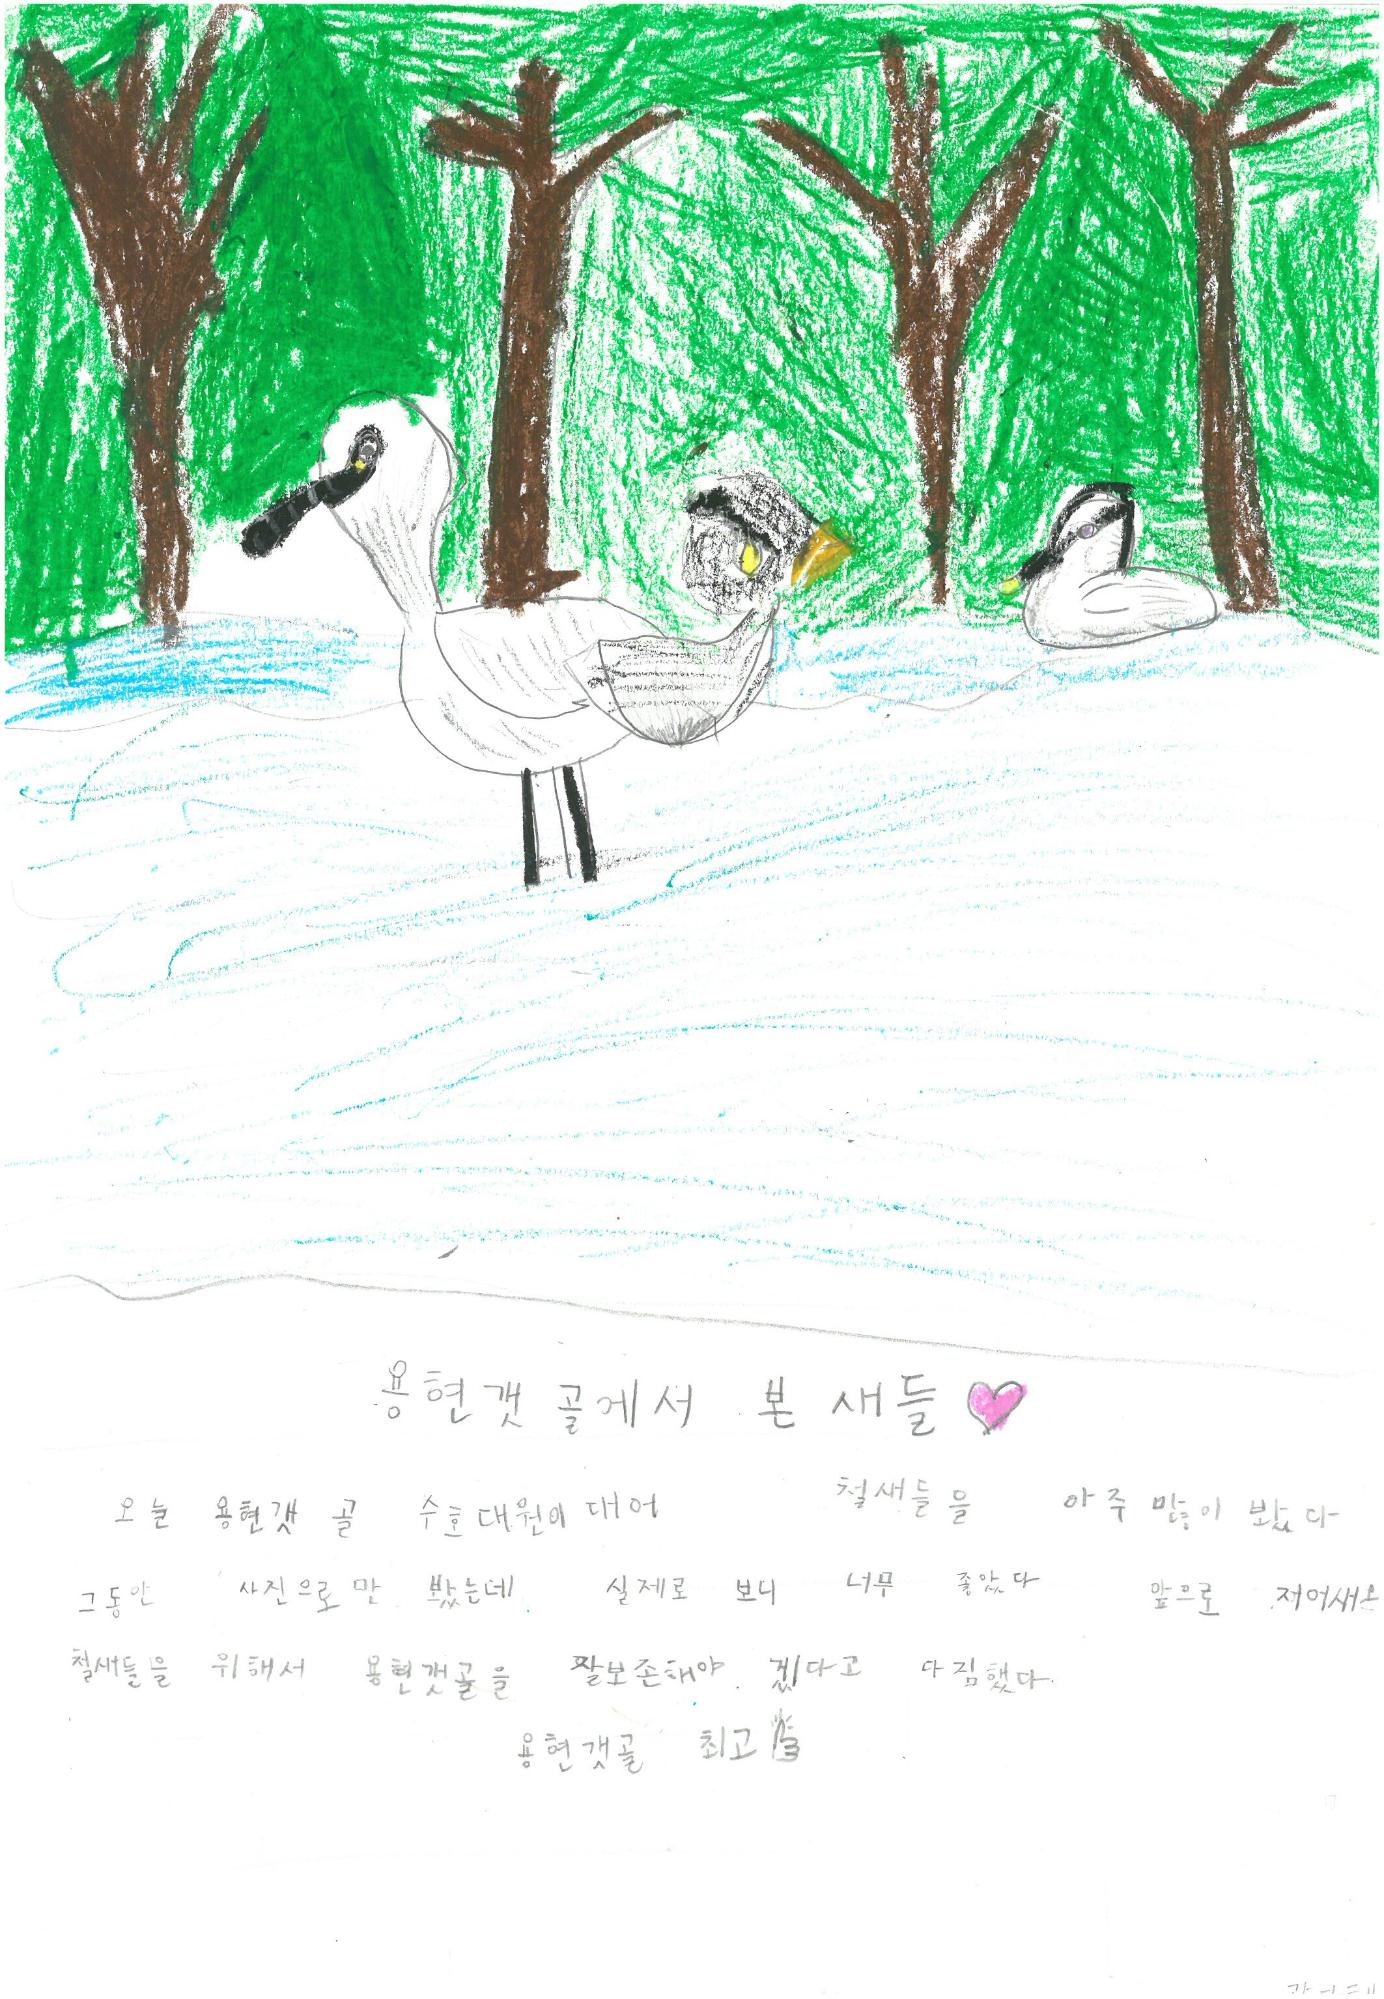 용현갯골에서 본 새들
오늘 용현갯골 수호대원이 대어 철새들을 아주 많이 봤다
그동안 사진으로만 봤는데 실제로 보니 너무 좋았다 앞으로 저어새와
철새들을 위해서 용현갯골을 잘보존해야 겠다고 다짐했다.
용현갯골 최고